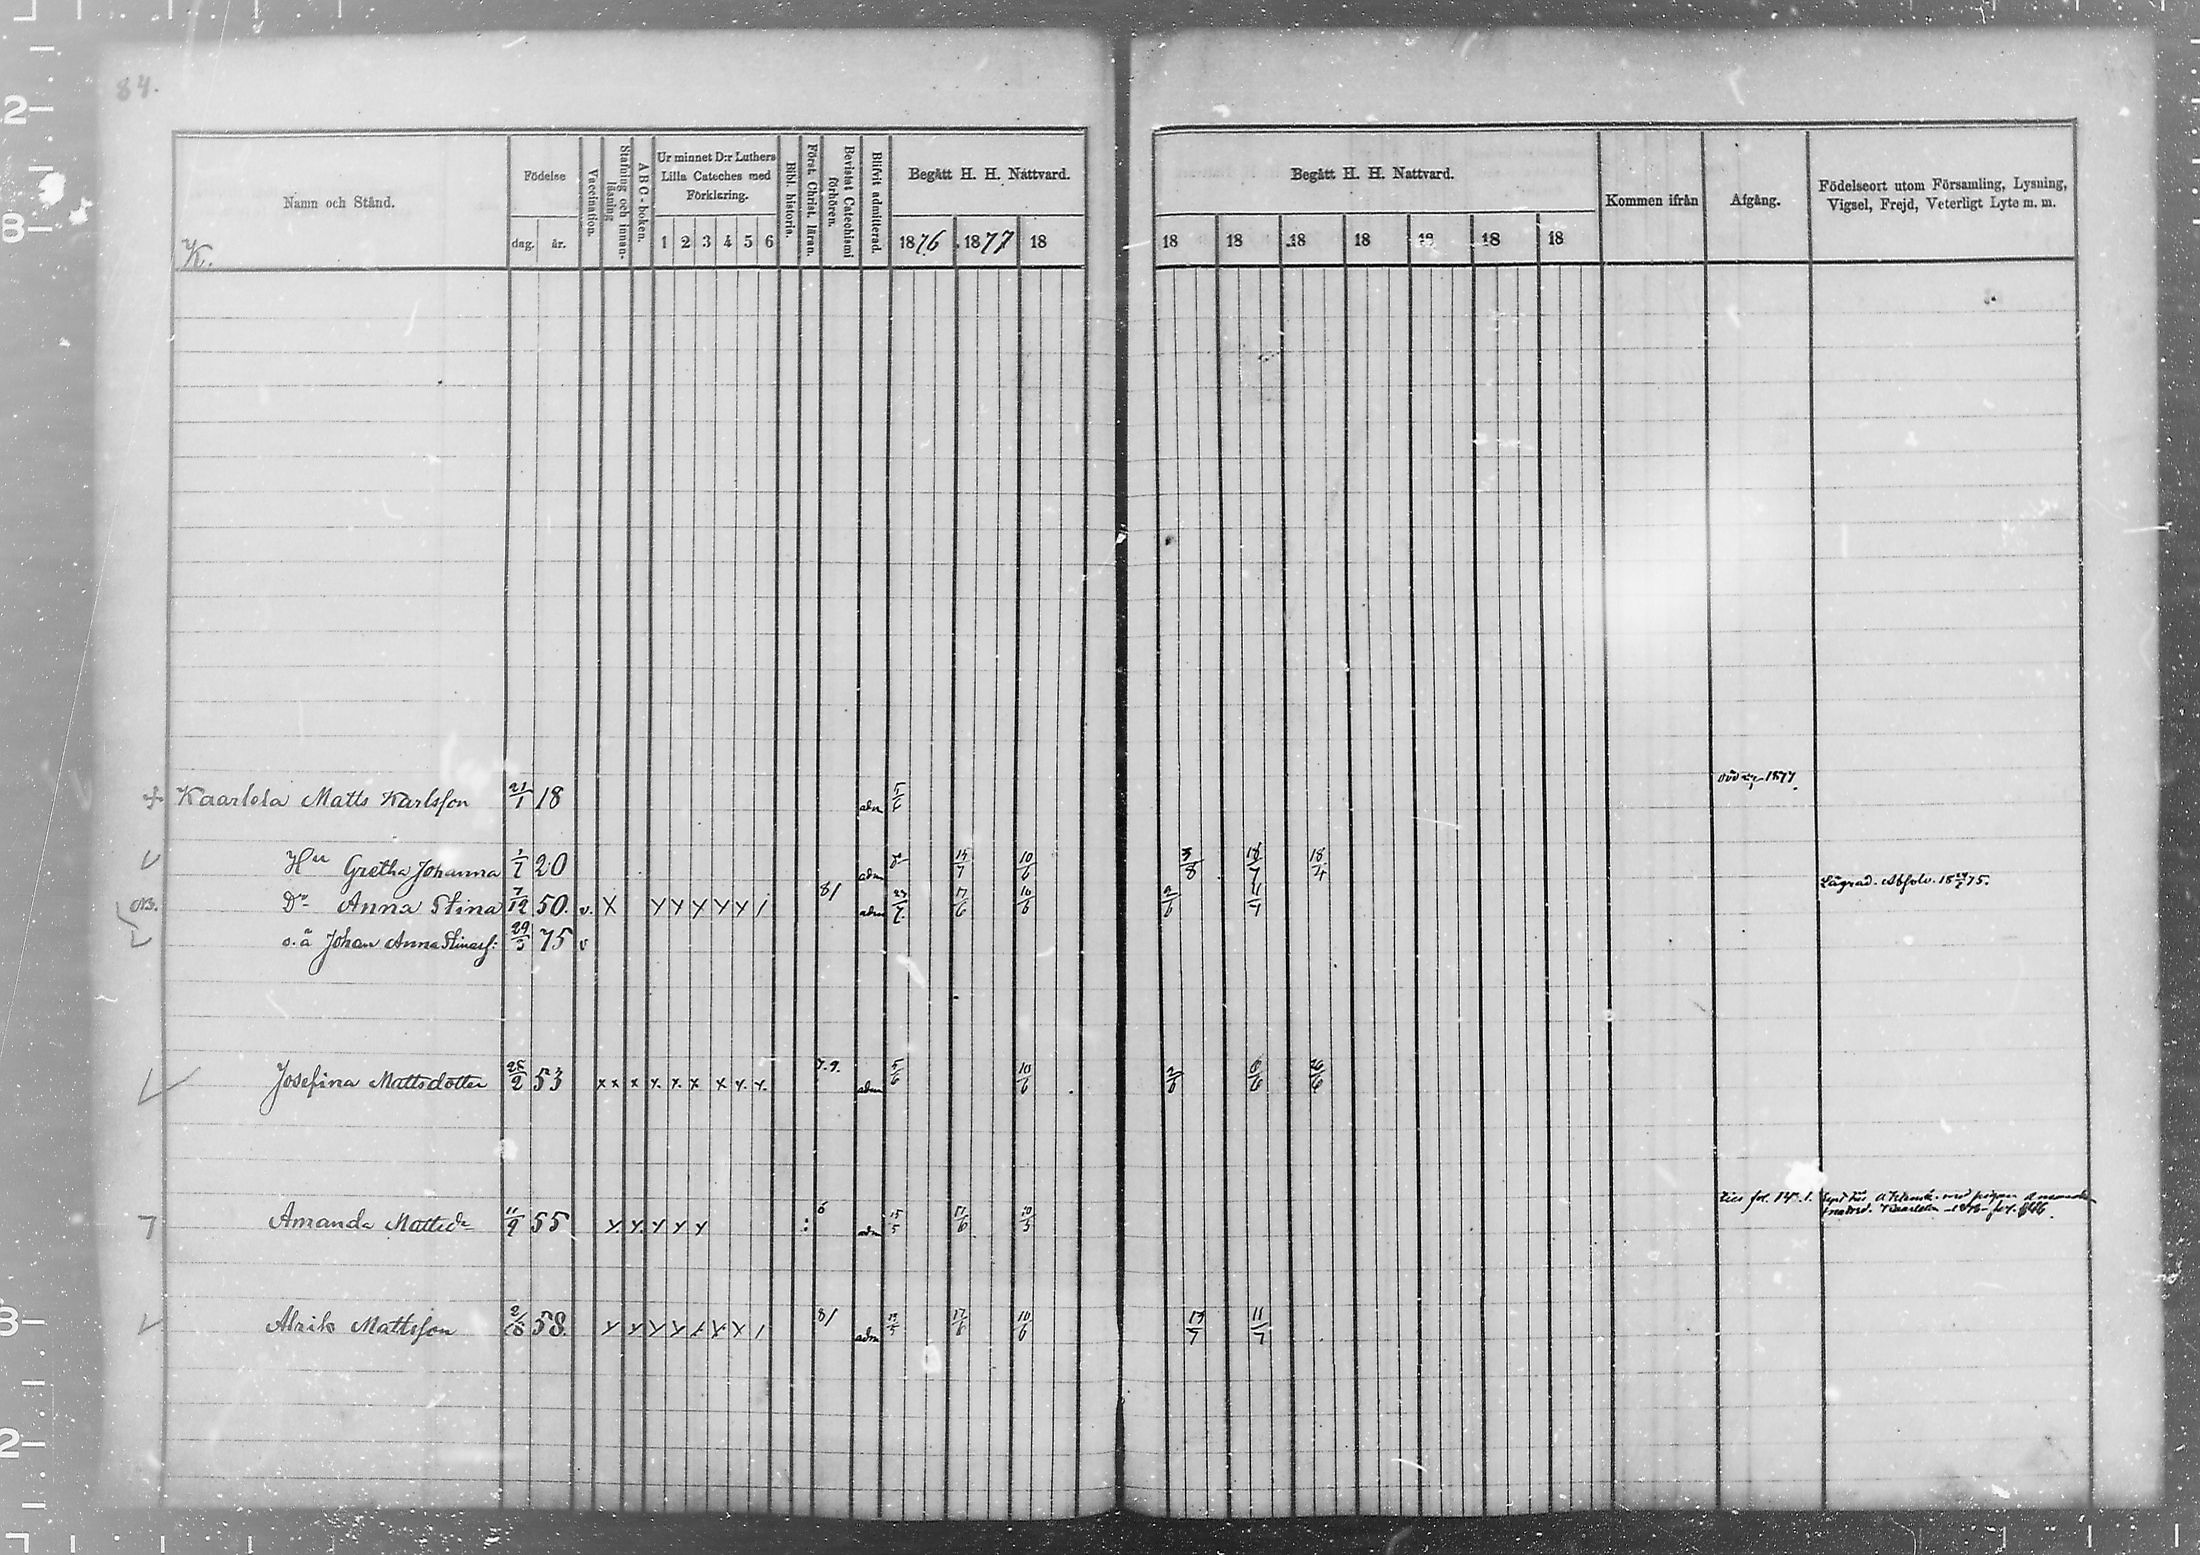 84.
Namn och Stånd.
K.
Födelse
dag.
år.
Vaccination.
Stafning och innanläsning
A B C - boken.
Ur minnet D:r Luthers Lilla Cateches med Förklaring.
1 2 3 4 5 6
Bibl. historia.
Först. Christ. läran.
Bevistat Catechismi förhören.
Blifvit admitterad.
Begått H. H. Nattvard.
1876 1877 18
Begått H. H. Nattvard.
18 18 18 18 18 18 18
Kommen ifrån
Afgång.
Födelseort utom Församling, Lysning, Vigsel, Frejd, Veterligt Lyte m. m.
Kaarlela Matts Karlsson 21/1 18 adm 1877.
Hu Gretha Johanna 1/7 20 adm 15/7 10/6 3/8 18/7 18/4
Dr Anna Stina 7/12 50. v. X y y y y y / 8/ adm 17/6 10/6 2/6 11/7 Lägrad. Absolv. 75.
o. ä Johan Anna Stinas s: 29/3 75 v
Josefina Mattsdotter 25/2 53 x x x x x x x x x 7.9. adm 5/6 10/6 2/6 6/6 26/6
Amanda Mattsdr 11/9 55 y y y y y : 6 adm 15/5 17/6 fol. 141. med pigan Amanda
Kaarlela 1876
Alrik Mattsson 58. y y y y y y y / 8/ adm 17/6 10/6 11/7